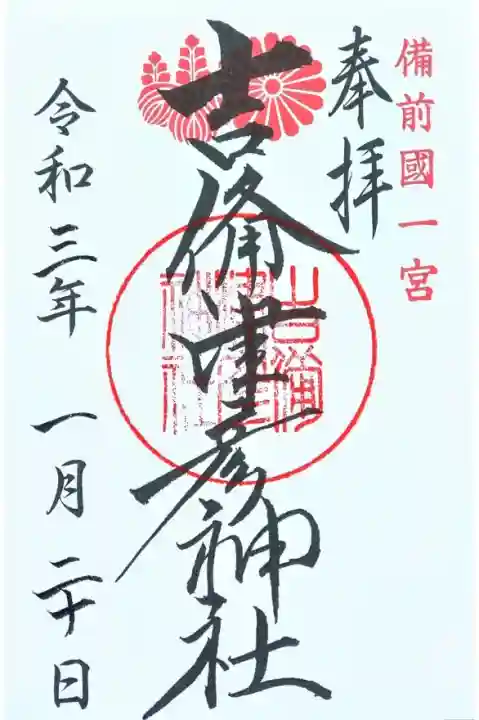 備前國一宮
奉拝
吉備津彦神社
吉備津彦神社
令和三年 一月 二十日